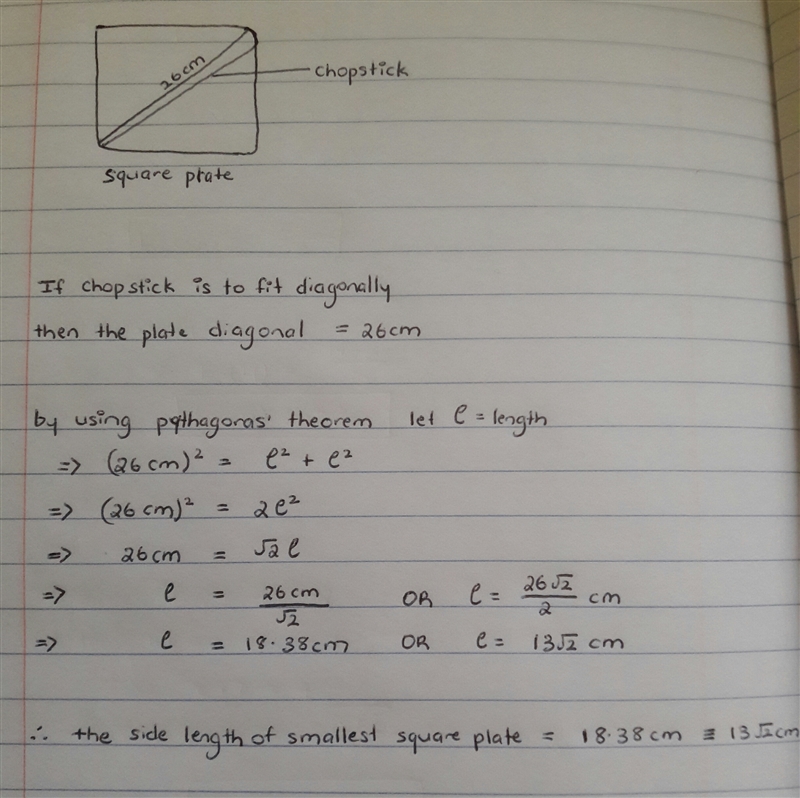 26cm
chopstick
square plate
If chopstick is to fit diagonally
then the plate diagonal = 26cm
by using pythagoras' theorem let ℓ = length
=> (26 cm)² = ℓ² + ℓ²
=> (26 cm)² = 2ℓ²
=> 26cm = √2 ℓ
=> ℓ = 26cm/√2 OR ℓ = 26√2/2 cm
=> ℓ = 18.38cm OR ℓ = 13√2 cm
∴ the side length of smallest square plate = 18.38cm ≡ 13√2cm